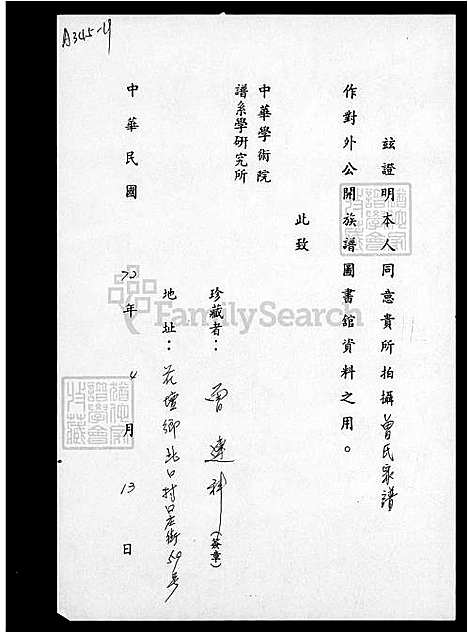 A345-4
茲證明本人同意貴所拍攝曾氏家譜
作對外公開族譜圖書館資料之用。
此致
中華學術院
譜系學研究所
珍藏者：曾達科（簽章）
地址：花壇鄉北口村口庄街59号
中華民國72年4月13日
FamilySearch